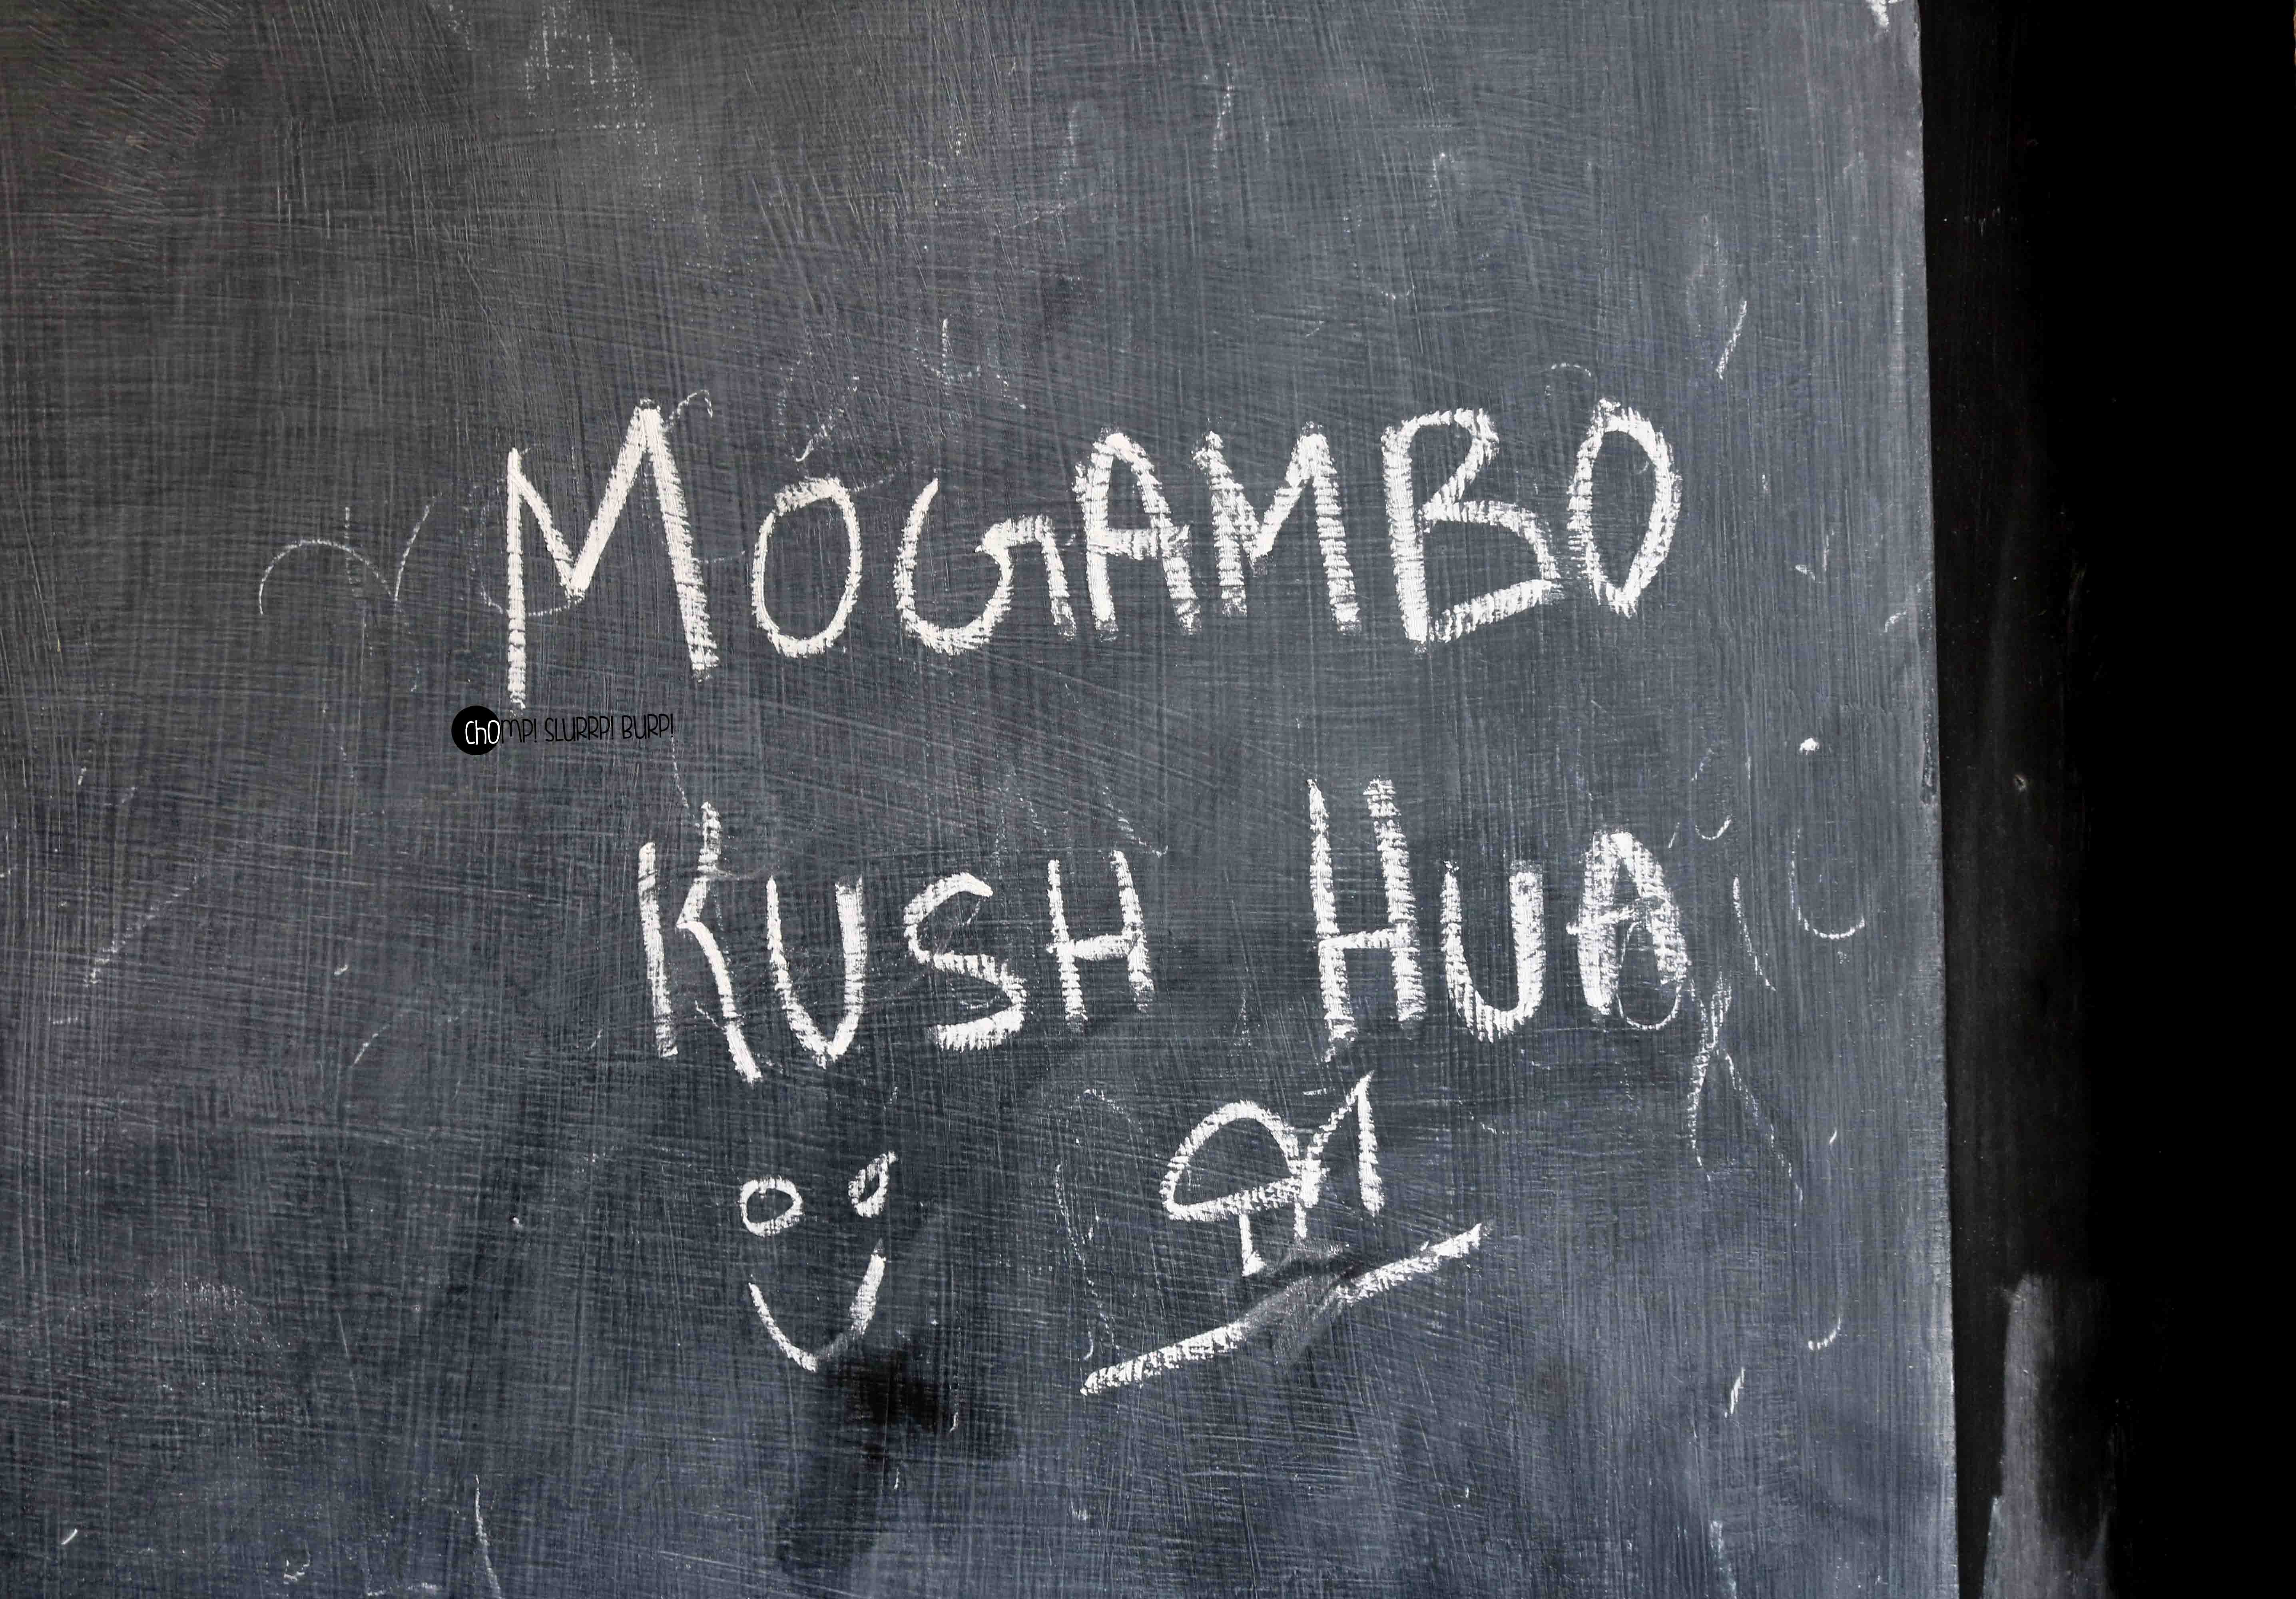 MOGAMBO
ChOMP! SLURRP! BURP!
KUSH HUA